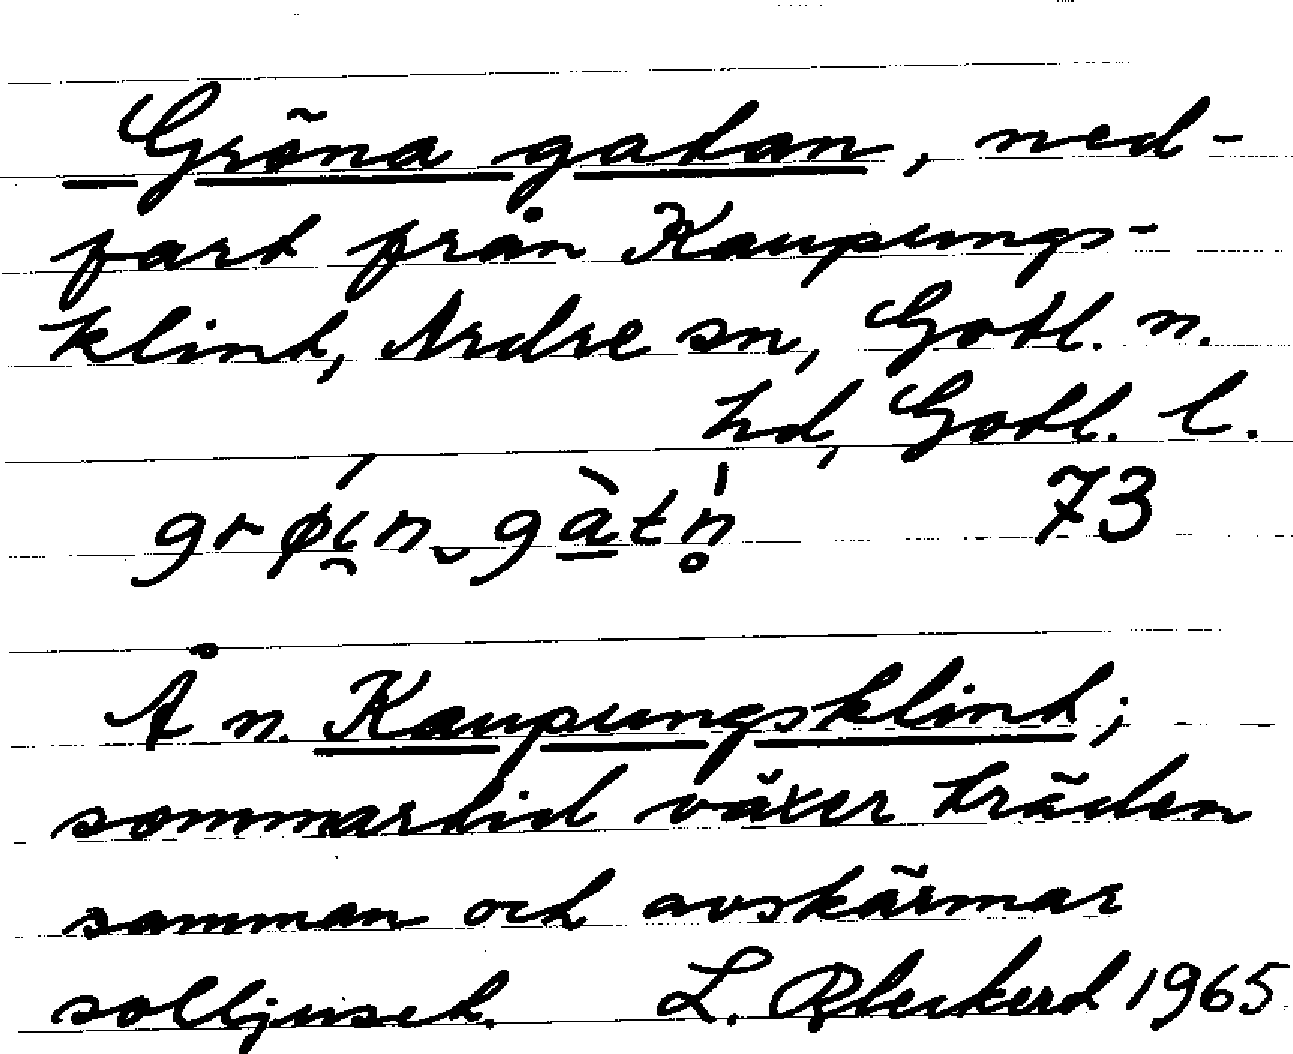 Gröna gatan, ned-
fart från Kaupungs-
klint, Ardre sn, Gotl. n.
hd, Gotl. l.
73
Å n. Kaupungsklint;
sommartid växer träden
samman och avskärmar
solljuset. L. Bleckert 1965